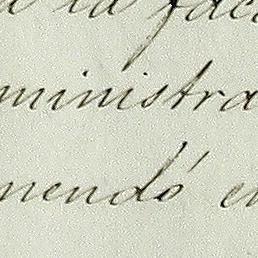 la fac
ministra
mendó en